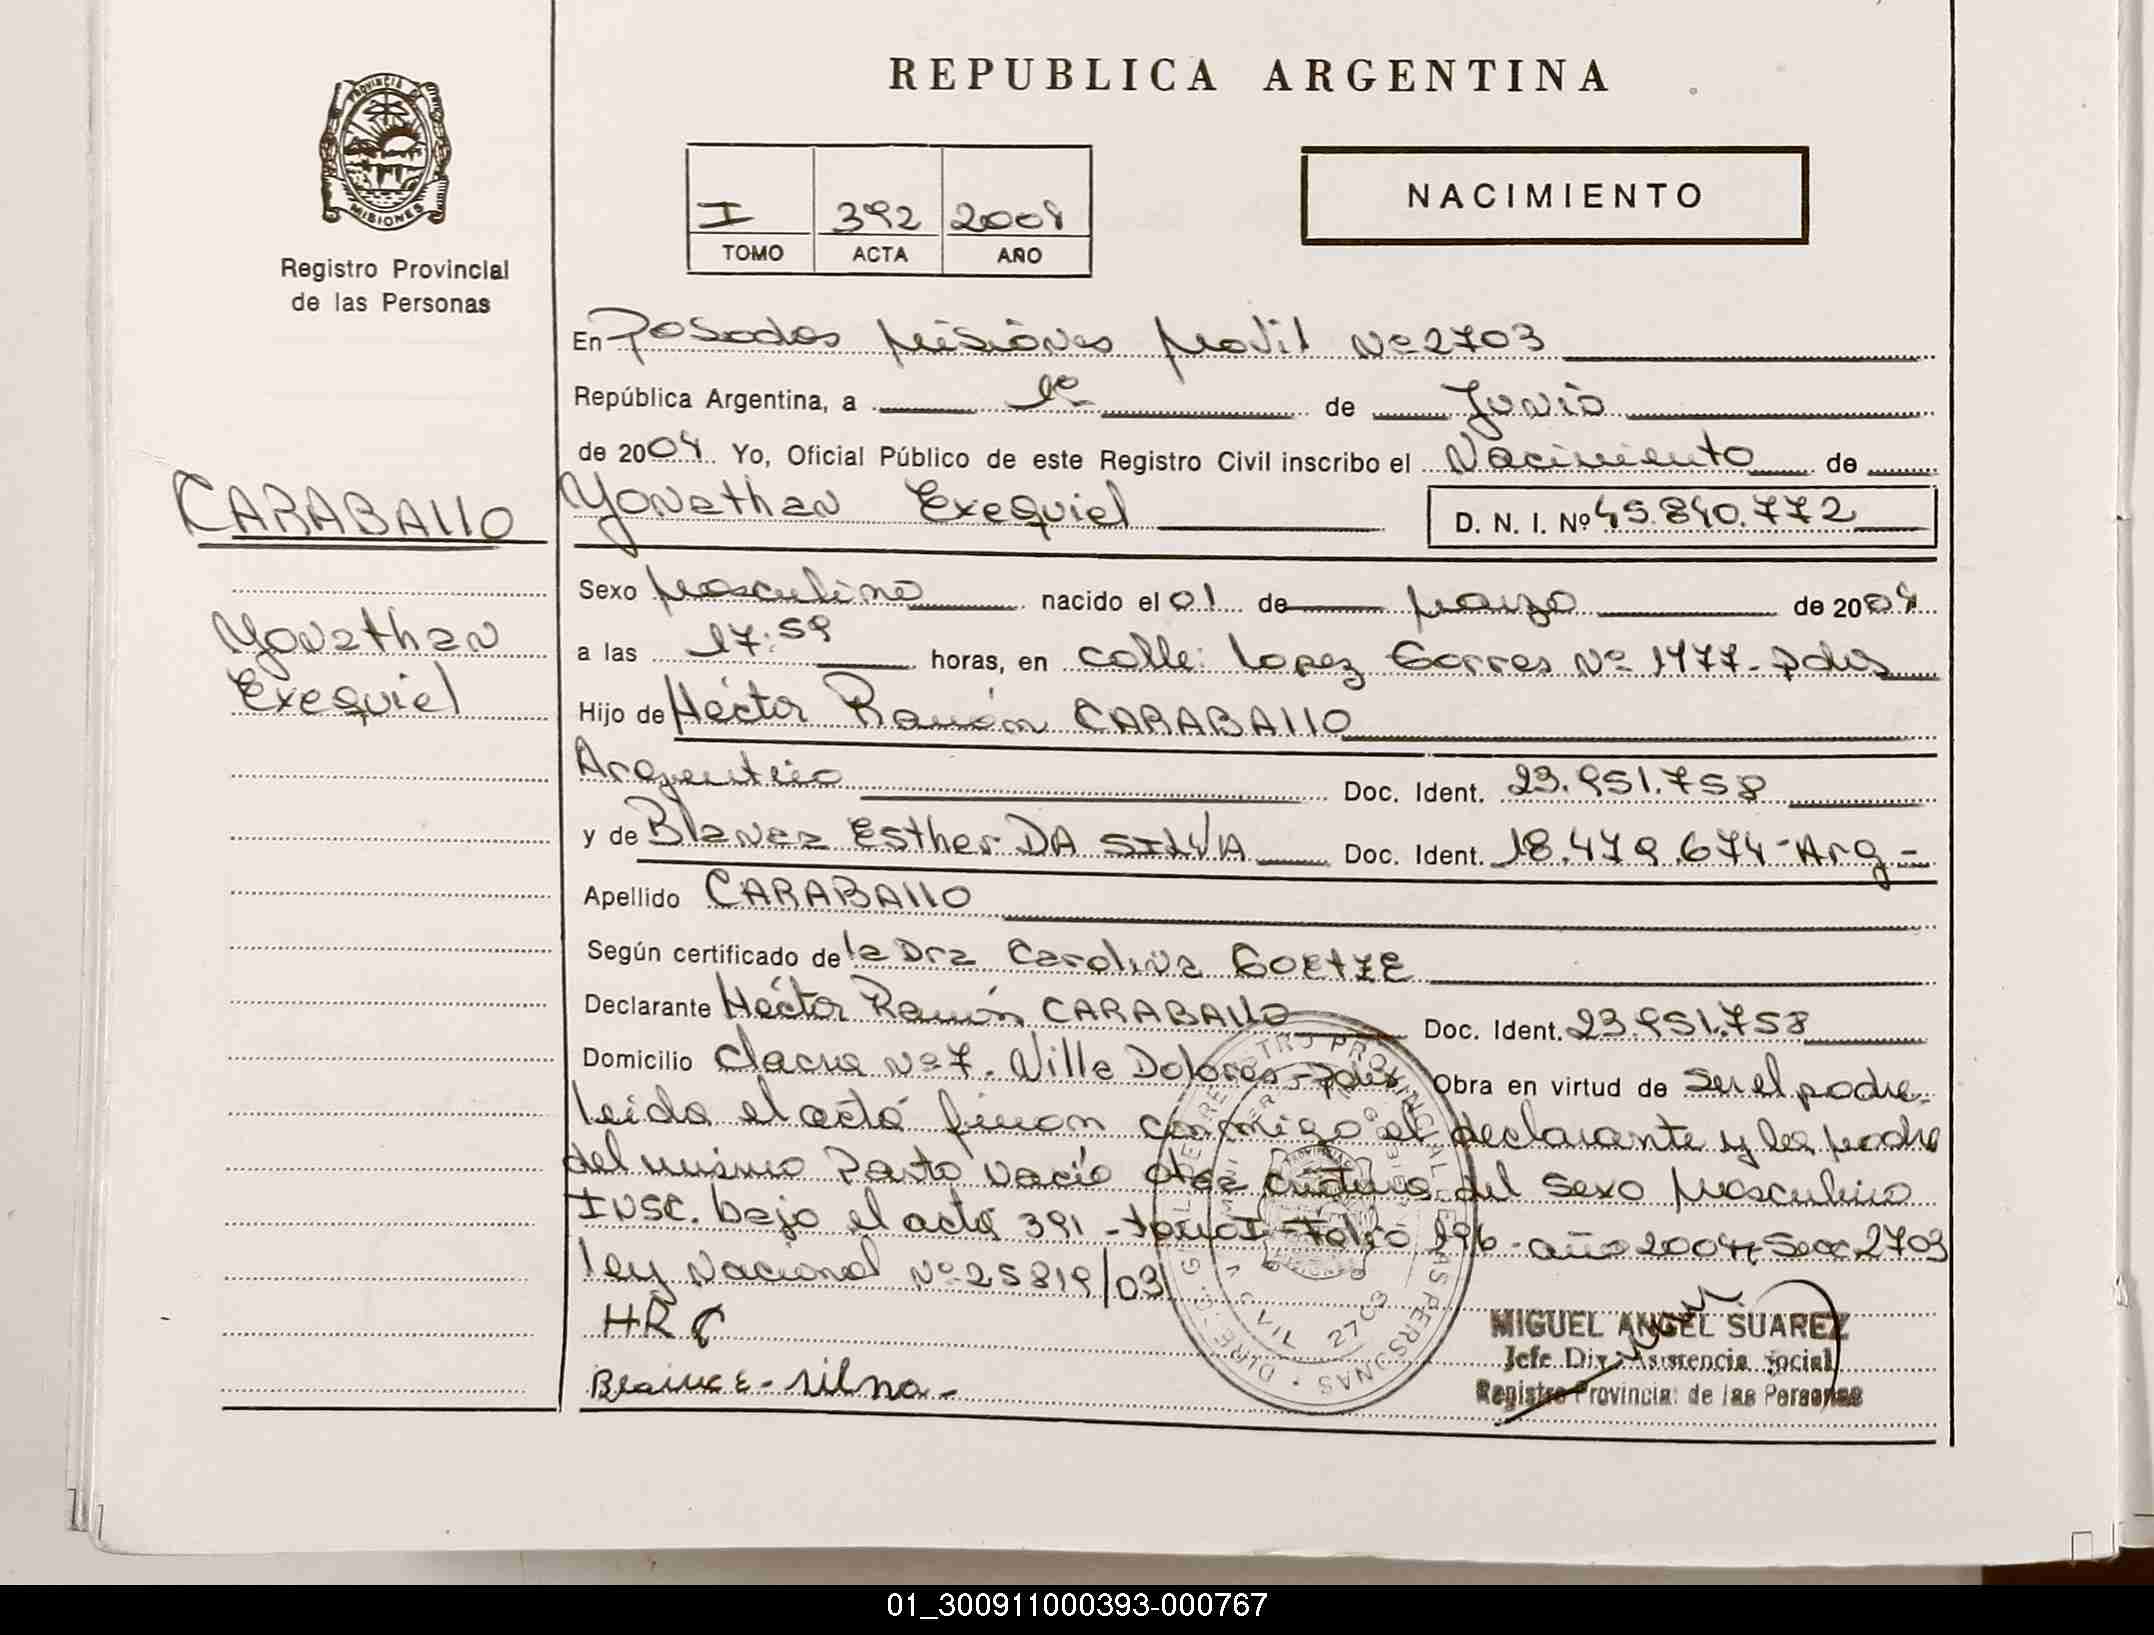 REPUBLICA ARGENTINA
PROVINCIA DE
MISIONES
Registro Provincial
de las Personas
I 392 2004
TOMO ACTA AÑO
NACIMIENTO
En Posadas Misiones Movil Nº 2703
República Argentina, a 1º de Junio
de 2004 Yo, Oficial Público de este Registro Civil inscribo el Nacimiento de
CARABALLO
Yonathan Exequiel D. N. I. Nº 45.840.772
Sexo Masculino nacido el 01 de Marzo de 2004
Yonathan
Exequiel
a las 17:59 horas, en calle: Lopez Torres Nº 1177- Pdas
Hijo de Héctor Ramón CARABALLO
Argentino Doc. Ident. 23.951.758
y de Blanca Esther DA SILVA Doc. Ident. 18.479.674-Arg-
Apellido CARABALLO
Según certificado de la Dra Carolina GOETZE
Declarante Héctor Ramón CARABALLO Doc. Ident. 23.951.758
Domicilio chacra Nº 7. Villa Dolores - Pdas Obra en virtud de ser el padre.
Leida el acta firman conmigo el declarante y la madre
del mismo Parto nació otra criatura del sexo Masculino
INSC. bajo el acta 391 - tomo I - Folio 196 - año 2004 - Secc 2703
Ley Nacional Nº 25819/03
HRC
MIGUEL ANGEL SUAREZ
Jefe Div. Asistencia Social
Registro Provincial de las Personas
2703
01_300911000393-000767